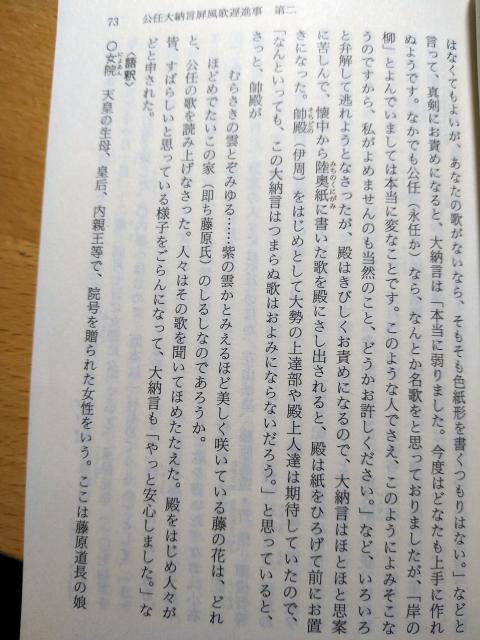 73　公任大納言屏風歌遅進事　第二
はなくてもよいが、あなたの歌がないなら、そもそも色紙形を書くつもりはない。」などと
言って、真剣にお責めになると、大納言は「本当に弱りました。今度はどなたも上手に作れ
ぬようです。なかでも公任（永任か）なら、なんとか名歌をと思っておりましたが、「岸の
柳」とよんでいましては本当に変なことです。このような人でさえ、このようによみそこな
うのですから、私がよめませんのも当然のこと、どうかお許しください。」など、いろいろ
と弁解して逃れようとなさったが、殿はきびしくお責めになるので、大納言はほとほと思案
に苦しんで、懐中から陸奥紙に書いた歌を殿にさし出されると、殿は紙をひろげて前にお置
みちのくにがみ
きになった。帥殿（伊周）をはじめとして大勢の上達部や殿上人達は期待していたので、
そちどの
「なんといっても、この大納言はつまらぬ歌はおよみにならないだろう。」と思っていると、
さっと、帥殿が
むらさきの雲とぞみゆる……紫の雲かとみえるほど美しく咲いている藤の花は、どれ
ほどめでたいこの家（即ち藤原氏）のしるしなのであろうか。
と、公任の歌を読み上げなさった。人々はその歌を聞いてほめたたえた。殿をはじめ人々が
皆、すばらしいと思っている様子をごらんになって、大納言も「やっと安心しました。」な
どと申された。
〈語釈〉
〇女院　天皇の生母、皇后、内親王等で、院号を贈られた女性をいう。ここは藤原道長の娘
にょいん